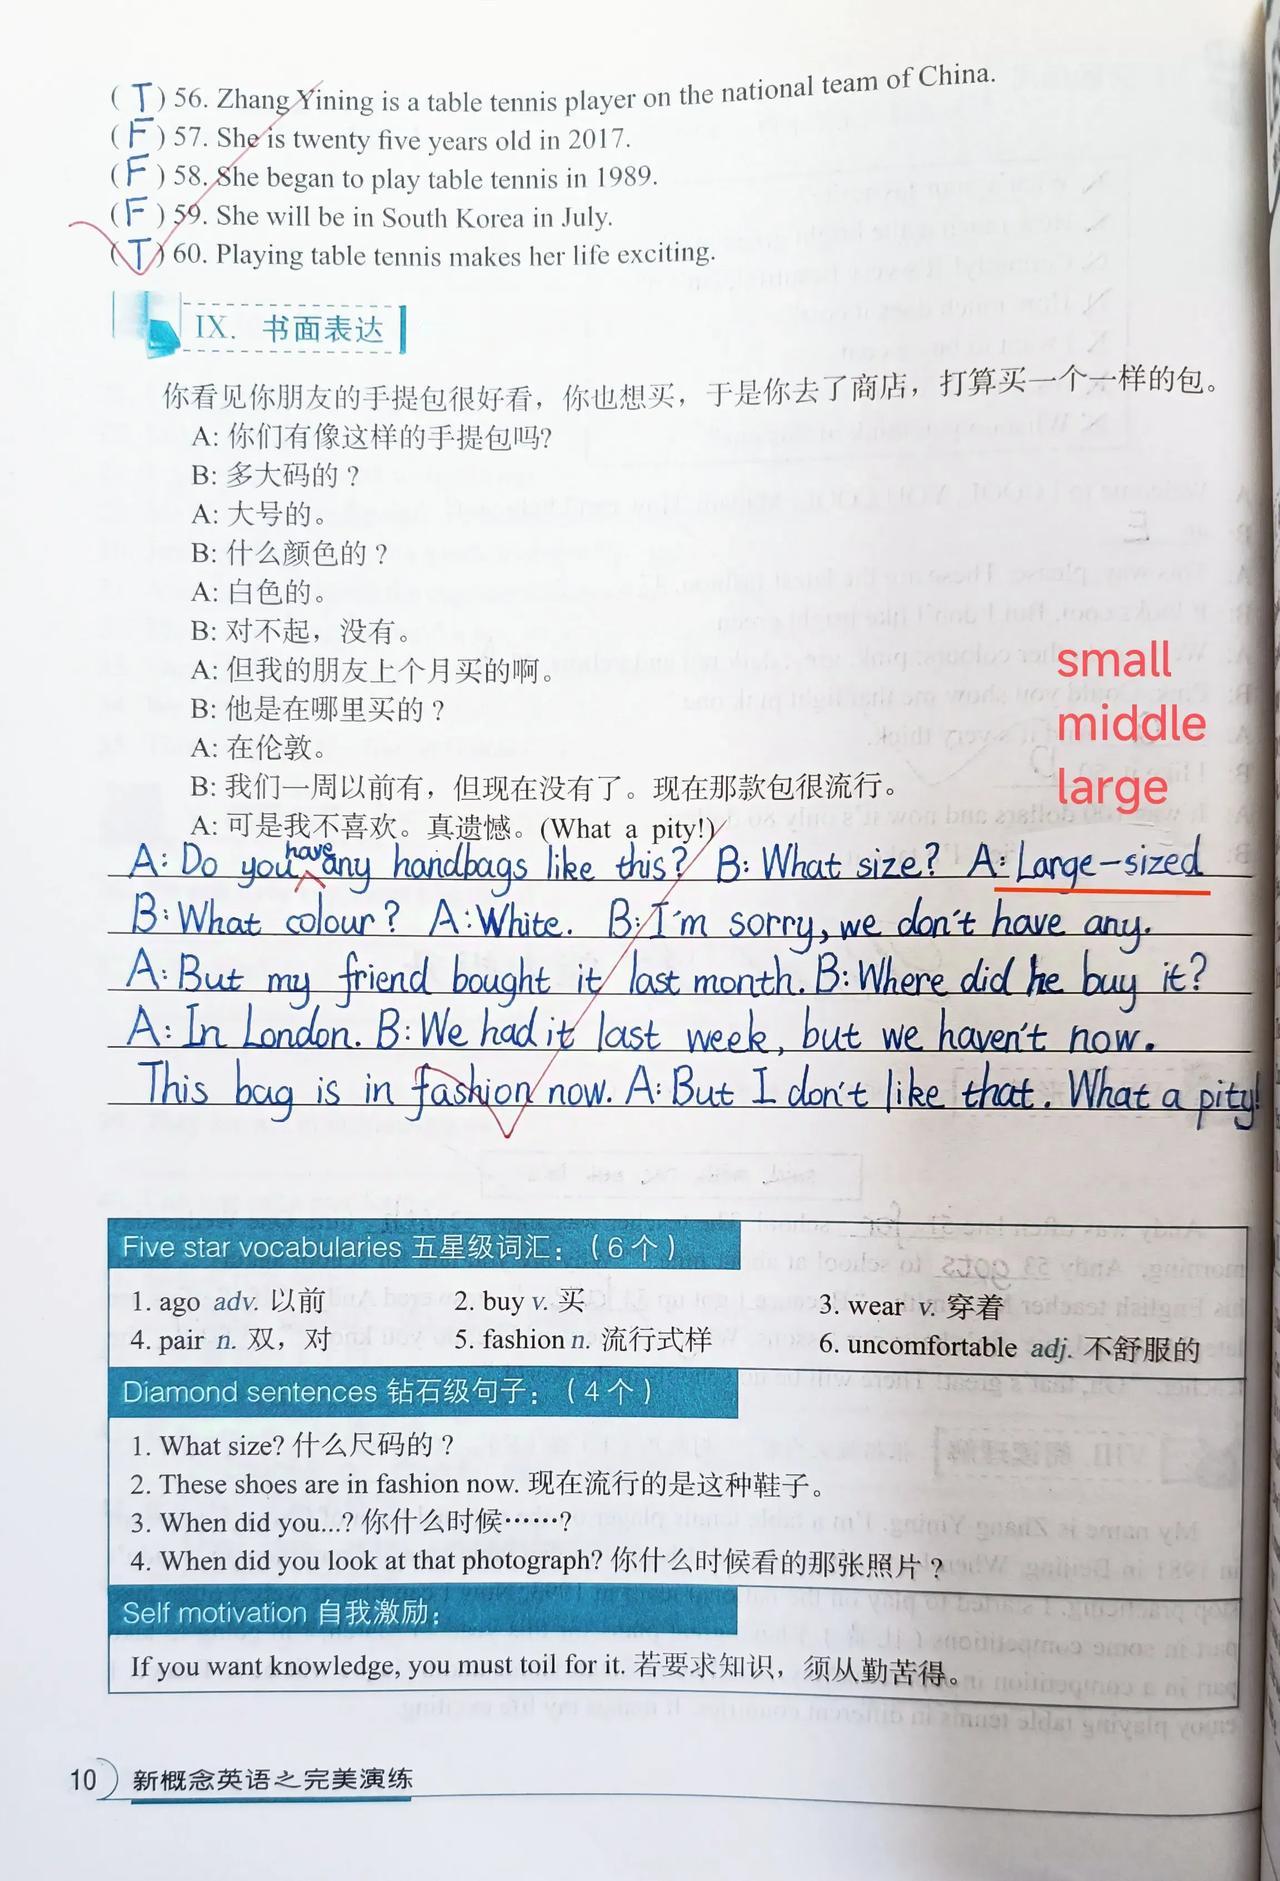 (T) 56. Zhang Yining is a table tennis player on the national team of China.
(F) 57. She is twenty five years old in 2017.
(F) 58. She began to play table tennis in 1989.
(F) 59. She will be in South Korea in July.
(T) 60. Playing table tennis makes her life exciting.
IX. 书面表达
你看见你朋友的手提包很好看，你也想买，于是你去了商店，打算买一个一样的包。
A: 你们有像这样的手提包吗?
B: 多大码的？
A: 大号的。
B: 什么颜色的？
A: 白色的。
B: 对不起，没有。
A: 但我的朋友上个月买的啊。
B: 他是在哪里买的？
A: 在伦敦。
B: 我们一周以前有，但现在没有了。现在那款包很流行。
A: 可是我不喜欢。真遗憾。(What a pity!)
small
middle
large
A: Do you have any handbags like this? B: What size? A: Large-sized
B: What colour? A: White. B: I'm sorry, we don't have any.
A: But my friend bought it last month. B: Where did he buy it?
A: In London. B: We had it last week, but we haven't now.
This bag is in fashion now. A: But I don't like that. What a pity!
Five star vocabularies 五星级词汇：（6个）
1. ago adv. 以前 2. buy v. 买 3. wear v. 穿着
4. pair n. 双，对 5. fashion n. 流行式样 6. uncomfortable adj. 不舒服的
Diamond sentences 钻石级句子：（4个）
1. What size? 什么尺码的？
2. These shoes are in fashion now. 现在流行的是这种鞋子。
3. When did you...? 你什么时候……?
4. When did you look at that photograph? 你什么时候看的那张照片？
Self motivation 自我激励：
If you want knowledge, you must toil for it. 若要求知识，须从勤苦得。
10 新概念英语之完美演练